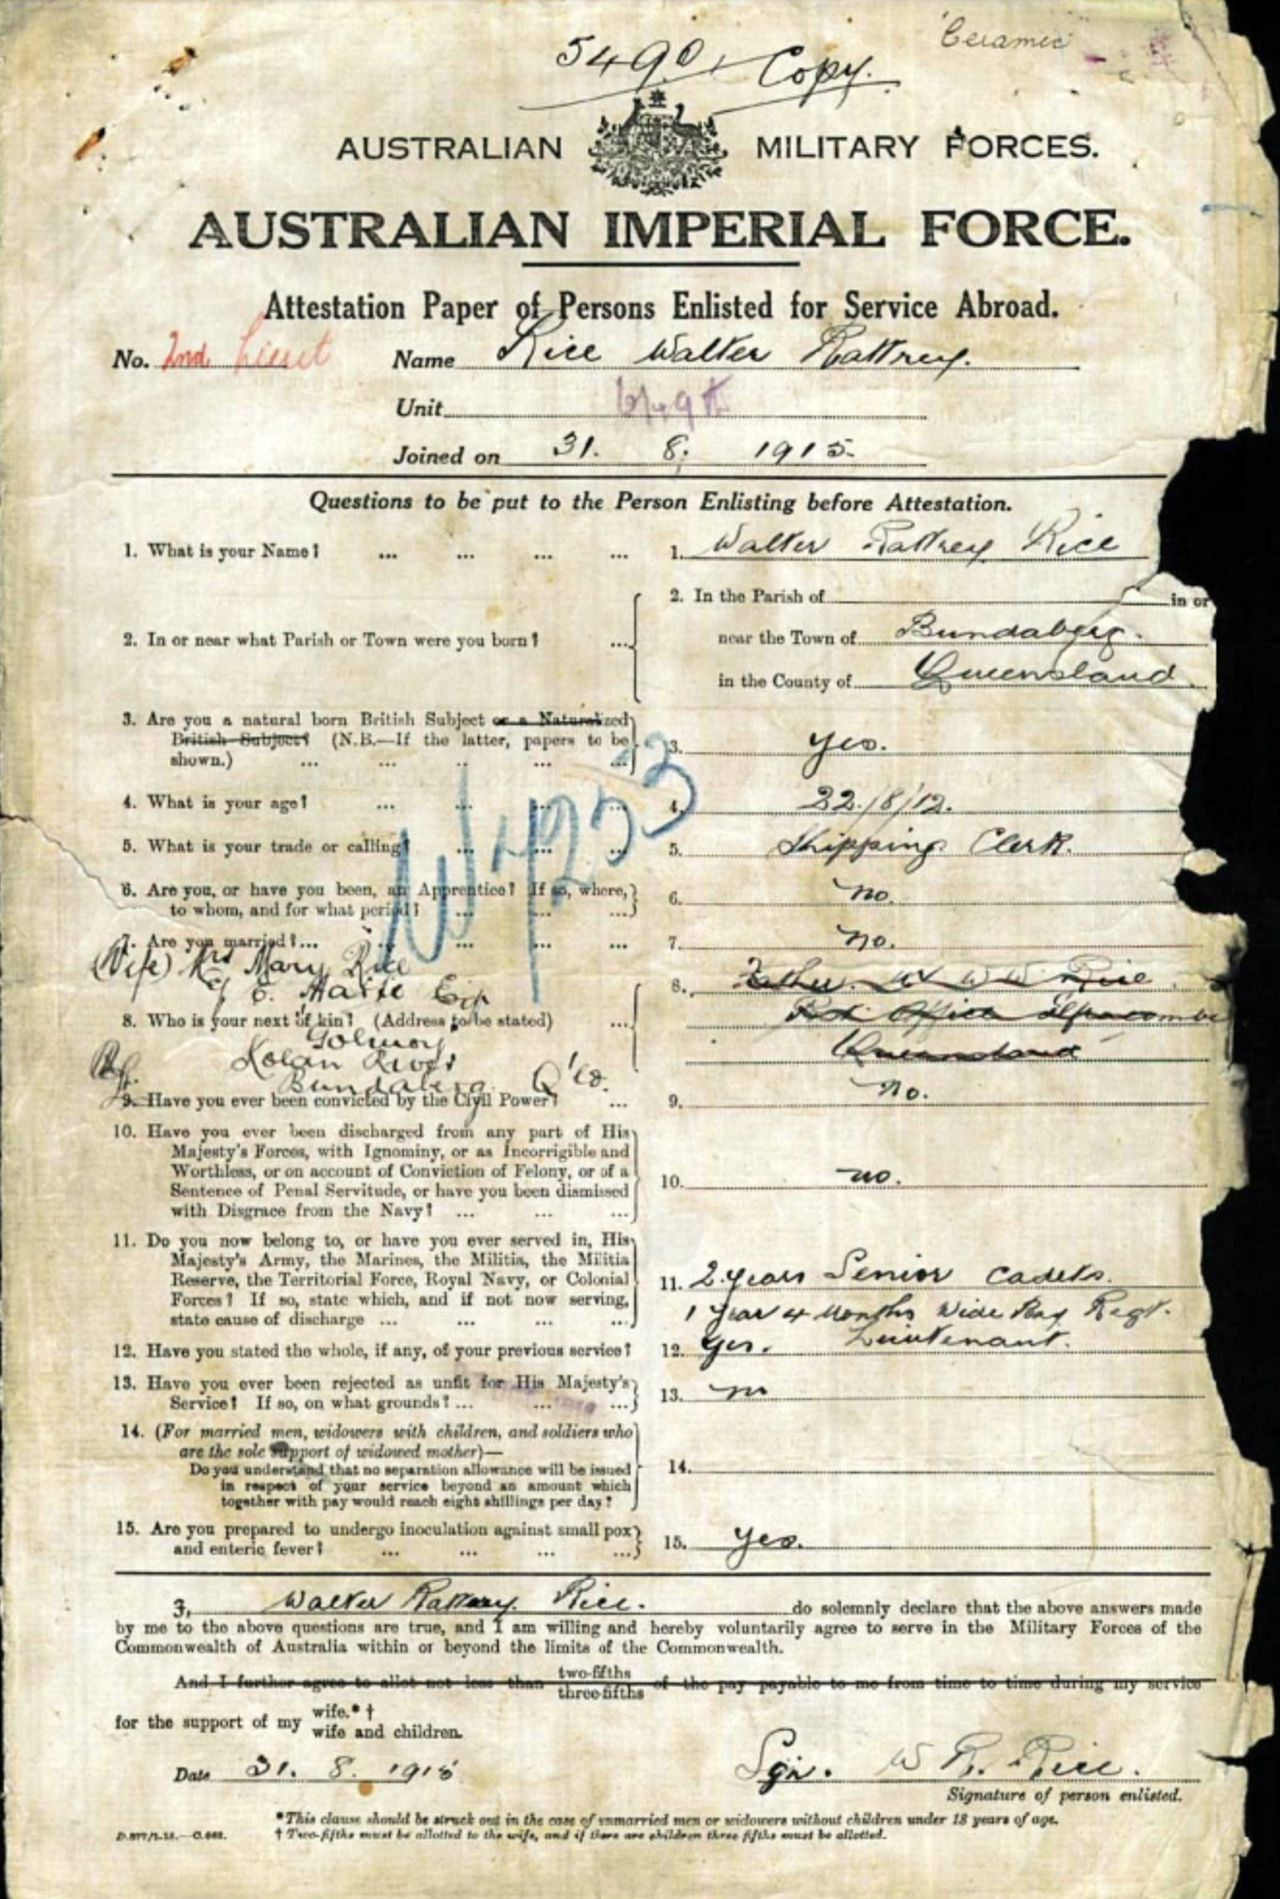 Ceramic
5490 Copy.
AUSTRALIAN MILITARY FORCES.
AUSTRALIAN IMPERIAL FORCE.
Attestation Paper of Persons Enlisted for Service Abroad.
No. 2nd Lieut Name Rice Walter Rattrey.
Unit 6/49th
Joined on 31. 8. 1915.
Questions to be put to the Person Enlisting before Attestation.
1. What is your Name? ... ... ... ... 1. Walter Rattrey Rice
2. In the Parish of in or
2. In or near what Parish or Town were you born? ... near the Town of Bundaberg.
in the County of Queensland
3. Are you a natural born British Subject or a Naturalized
British Subject? (N.B.—If the latter, papers to be 3. Yes.
shown.) ... ... ... ... ...
4. What is your age? ... ... ... ... 4. 22/8/12.
5. What is your trade or calling? ... ... ... 5. Shipping Clerk.
6. Are you, or have you been, an Apprentice? If so, where, 6. No.
to whom, and for what period? ... ... ...
7. Are you married?... ... ... ... ... 7. No.
W4253
(Wife) Mrs Mary Rice
8. Father. W W Rice
Post Office
8. Who is your next of kin? (Address to be stated) ...
Queensland
Kolan River
Bundaberg Q'ld.
9. Have you ever been convicted by the Civil Power? ... 9. No.
10. Have you ever been discharged from any part of His
Majesty's Forces, with Ignominy, or as Incorrigible and
Worthless, or on account of Conviction of Felony, or of a 10. No.
Sentence of Penal Servitude, or have you been dismissed
with Disgrace from the Navy? ... ... ...
11. Do you now belong to, or have you ever served in, His
Majesty's Army, the Marines, the Militia, the Militia
Reserve, the Territorial Force, Royal Navy, or Colonial 11. 2 years Senior Cadets.
Forces? If so, state which, and if not now serving, 1 Year 4 Months Wide Bay Regt.
state cause of discharge ... ... ... ...
12. Have you stated the whole, if any, of your previous service? 12. Yes. Lieutenant.
13. Have you ever been rejected as unfit for His Majesty's 13. No
Service? If so, on what grounds? ... ... ...
14. (For married men, widowers with children, and soldiers who
are the sole support of widowed mother)—
Do you understand that no separation allowance will be issued 14.
in respect of your service beyond an amount which
together with pay would reach eight shillings per day?
15. Are you prepared to undergo inoculation against small pox 15. Yes.
and enteric fever? ... ... ... ...
I, Walter Rattrey Rice. do solemnly declare that the above answers made
by me to the above questions are true, and I am willing and hereby voluntarily agree to serve in the Military Forces of the
Commonwealth of Australia within or beyond the limits of the Commonwealth.
And I further agree to allot not less than two-fifths three-fifths of the pay payable to me from time to time during my service
for the support of my wife.*† wife and children.
Date 31. 8. 1915 Sgn. W R. Rice.
Signature of person enlisted.
*This clause should be struck out in the case of unmarried men or widowers without children under 18 years of age.
† Two-fifths must be allotted to the wife, and if there are children three fifths must be allotted.